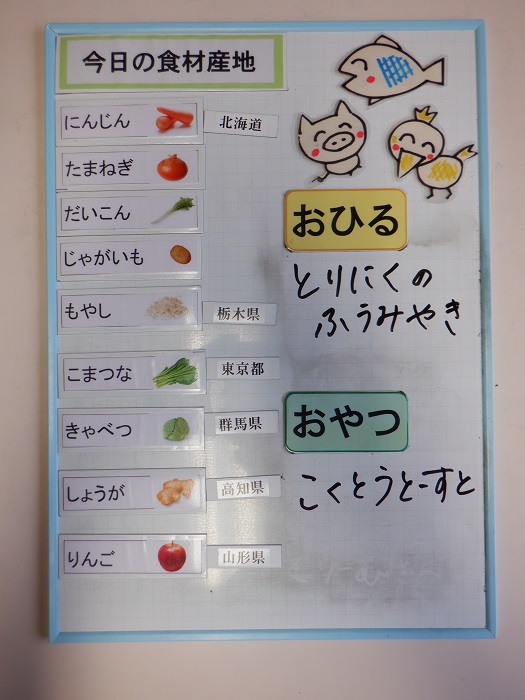 今日の食材産地
にんじん 北海道
たまねぎ
だいこん
じゃがいも
もやし 栃木県
こまつな 東京都
きゃべつ 群馬県
しょうが 高知県
りんご 山形県
おひる
とりにくの
ふうみやき
おやつ
こくとうとーすと